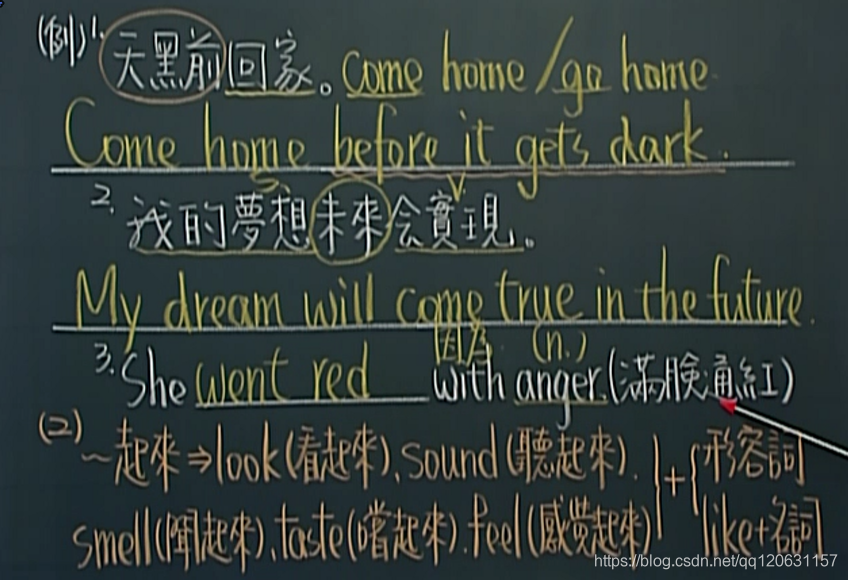 (例)1. 天黑前回家。come home/go home.
Come home before it gets dark.
S. V
2. 我的夢想未來会實現。
My dream will come true in the future.
因為 (n.)
3. She went red with anger.(滿臉通紅)
(2) ~起來⇒look(看起來).sound(聽起來). + 形容詞
smell(聞起來).taste(嚐起來).feel(感覺起來) like+名詞
https://blog.csdn.net/qq120631157